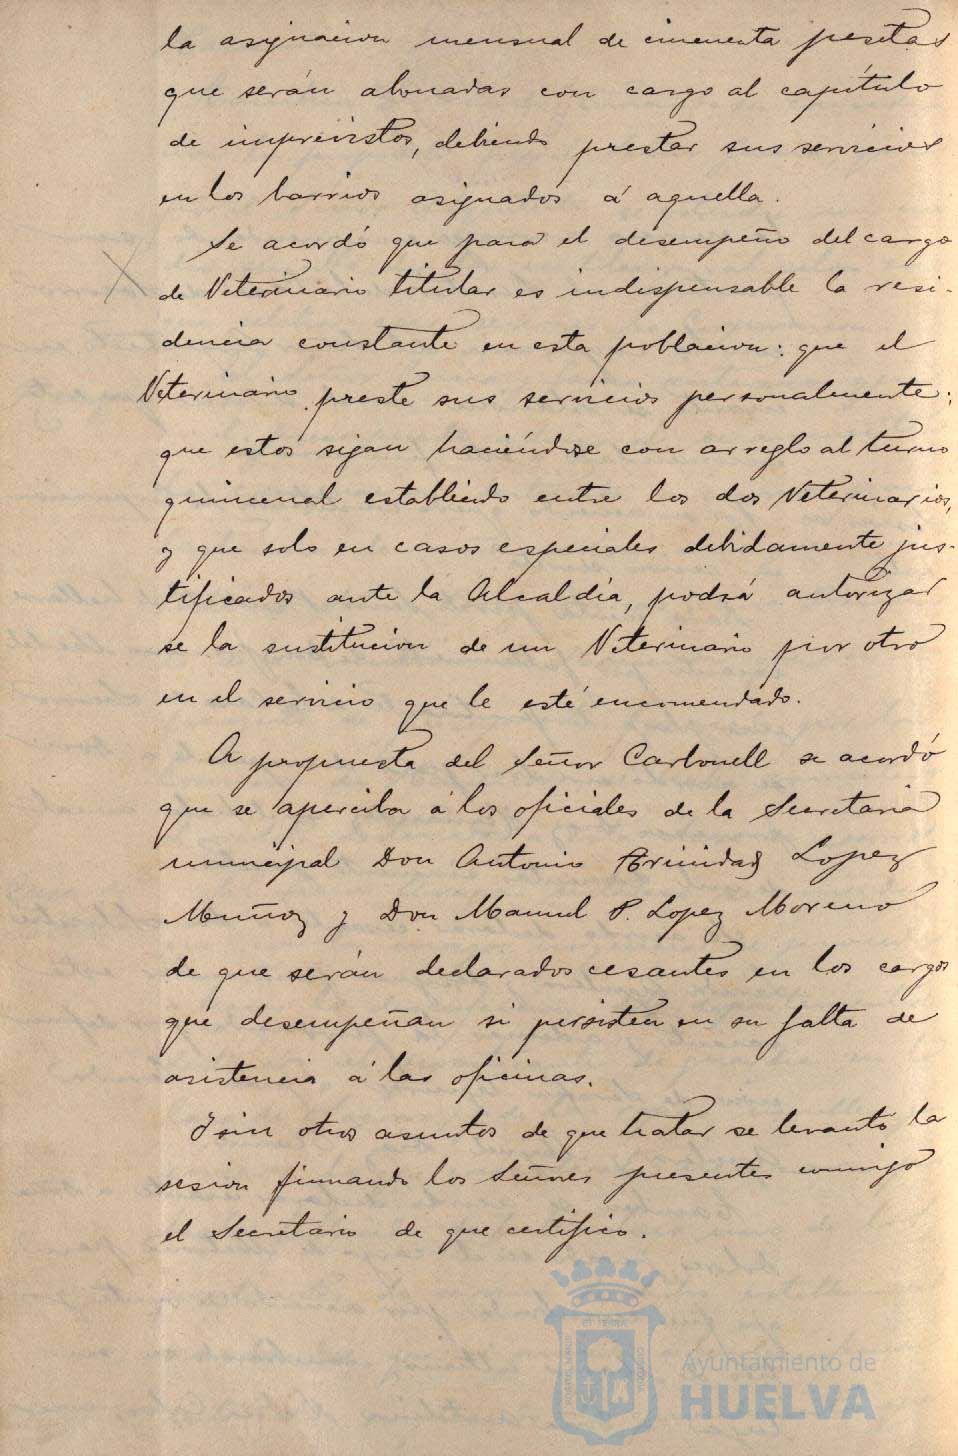 la asignacion mensual de cincuenta pesetas
que serán abonadas con cargo al capítulo
de imprevistos, debiendo prestar sus servicios
en los barrios asignados á aquella.
Se acordó que para el desempeño del cargo
de Veterinario titular es indispensable la resi-
dencia constante en esta poblacion: que el
Veterinario preste sus servicios personalmente;
que estos sigan haciéndose con arreglo al turno
quincenal establecido entre los dos Veterinarios,
y que solo en casos especiales debidamente jus-
tificados ante la Alcaldía, podrá autorizar
se la sustitucion de un Veterinario por otro
en el servicio que le esté encomendado.
A propuesta del Señor Carbonell se acordó
que se aperciba á los oficiales de la Secretaria
municipal Don Antonio Trinidad Lopez
Muñoz y Don Manuel P. Lopez Moreno
de que serán declarados cesantes en los cargos
que desempeñan si persisten en su falta de
asistencia á las oficinas.
Y sin otros asuntos de que tratar se levantó la
sesion firmando los Señores presentes conmigo
el Secretario de que certifico.
Ayuntamiento de
HUELVA